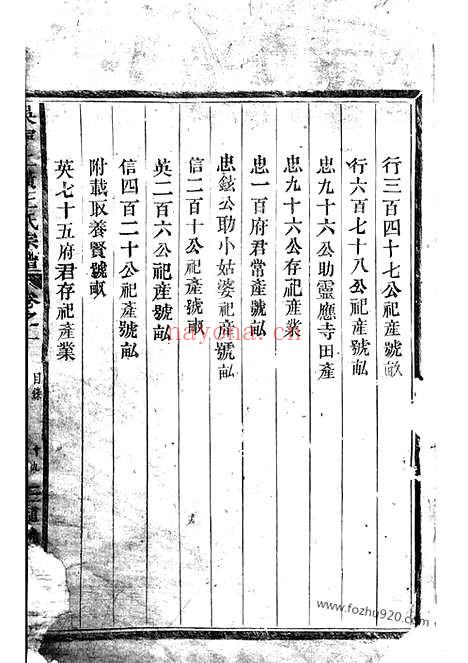 行三百四十七公祀產號畝
行六百七十八公祀產號畝
忠九十六公助靈應寺田產
忠九十六公存祀產業
忠一百府君常產號畝
忠鉉公助小姑婆祀產號畝
信二百十公祀產號畝
英二百六公祀產號畝
信四百二十公祀產號畝
附載取養賢號畝
英七十五府君存祀產業
王氏宗譜 卷之二 目錄
nayona.cn
www.fozhu920.com